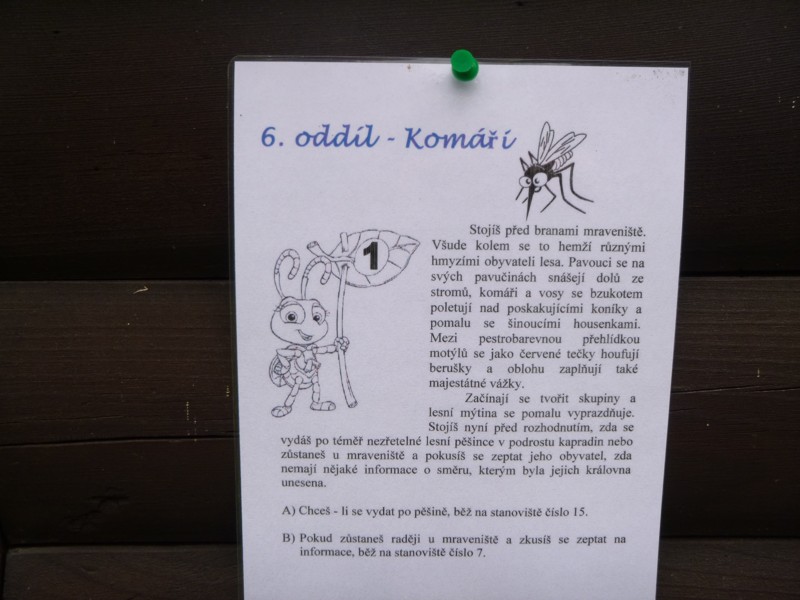 6. oddíl - Komáří
1
Stojíš před branami mraveniště.
Všude kolem se to hemží různými
hmyzími obyvateli lesa. Pavouci se na
svých pavučinách snášejí dolů ze
stromů, komáři a vosy se bzukotem
poletují nad poskakujícími koníky a
pomalu se šinoucími housenkami.
Mezi pestrobarevnou přehlídkou
motýlů se jako červené tečky houfují
berušky a oblohu zaplňují také
majestátné vážky.
Začínají se tvořit skupiny a
lesní mýtina se pomalu vyprazdňuje.
Stojíš nyní před rozhodnutím, zda se
vydáš po téměř nezřetelné lesní pěšince v podrostu kapradin nebo
zůstaneš u mraveniště a pokusíš se zeptat jeho obyvatel, zda
nemají nějaké informace o směru, kterým byla jejich královna
unesena.
A) Chceš - li se vydat po pěšině, běž na stanoviště číslo 15.
B) Pokud zůstaneš raději u mraveniště a zkusíš se zeptat na
informace, běž na stanoviště číslo 7.